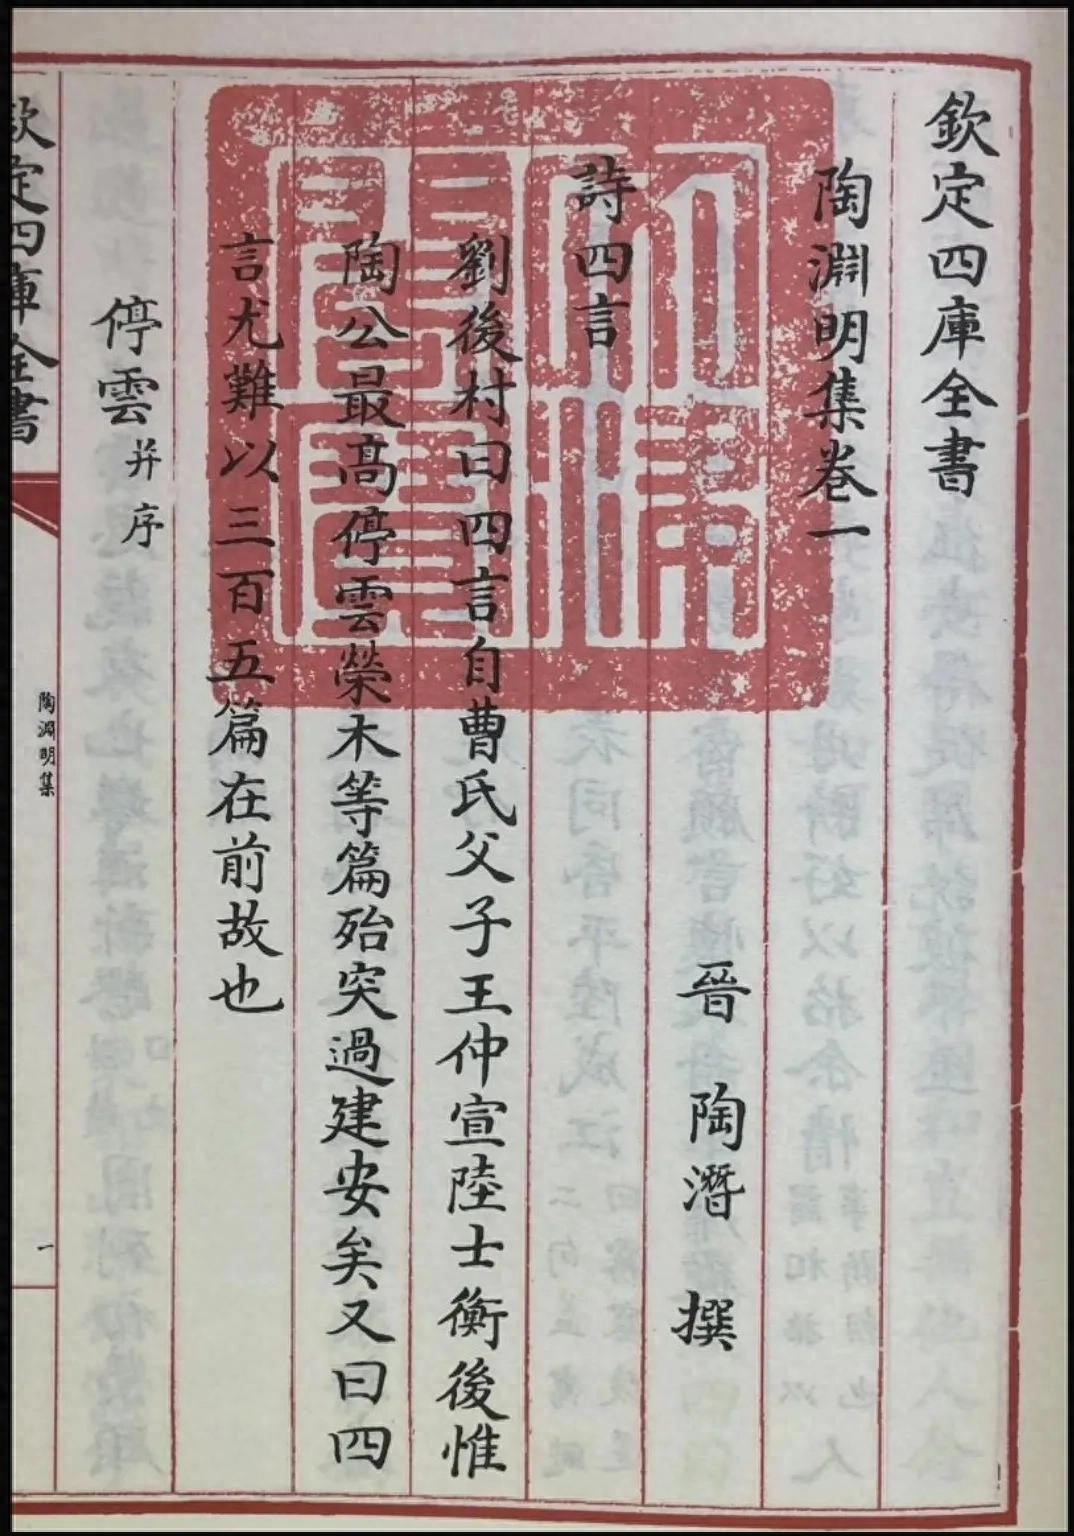 欽定四庫全書
陶淵明集卷一
晉 陶潛 撰
詩四言
劉後村曰四言自曹氏父子王仲宣陸士衡後惟
陶公最髙停雲榮木等篇殆突過建安矣又曰四
言尤難以三百五篇在前故也
停雲并序
欽定四庫全書
陶淵明集
一
文津閣寶